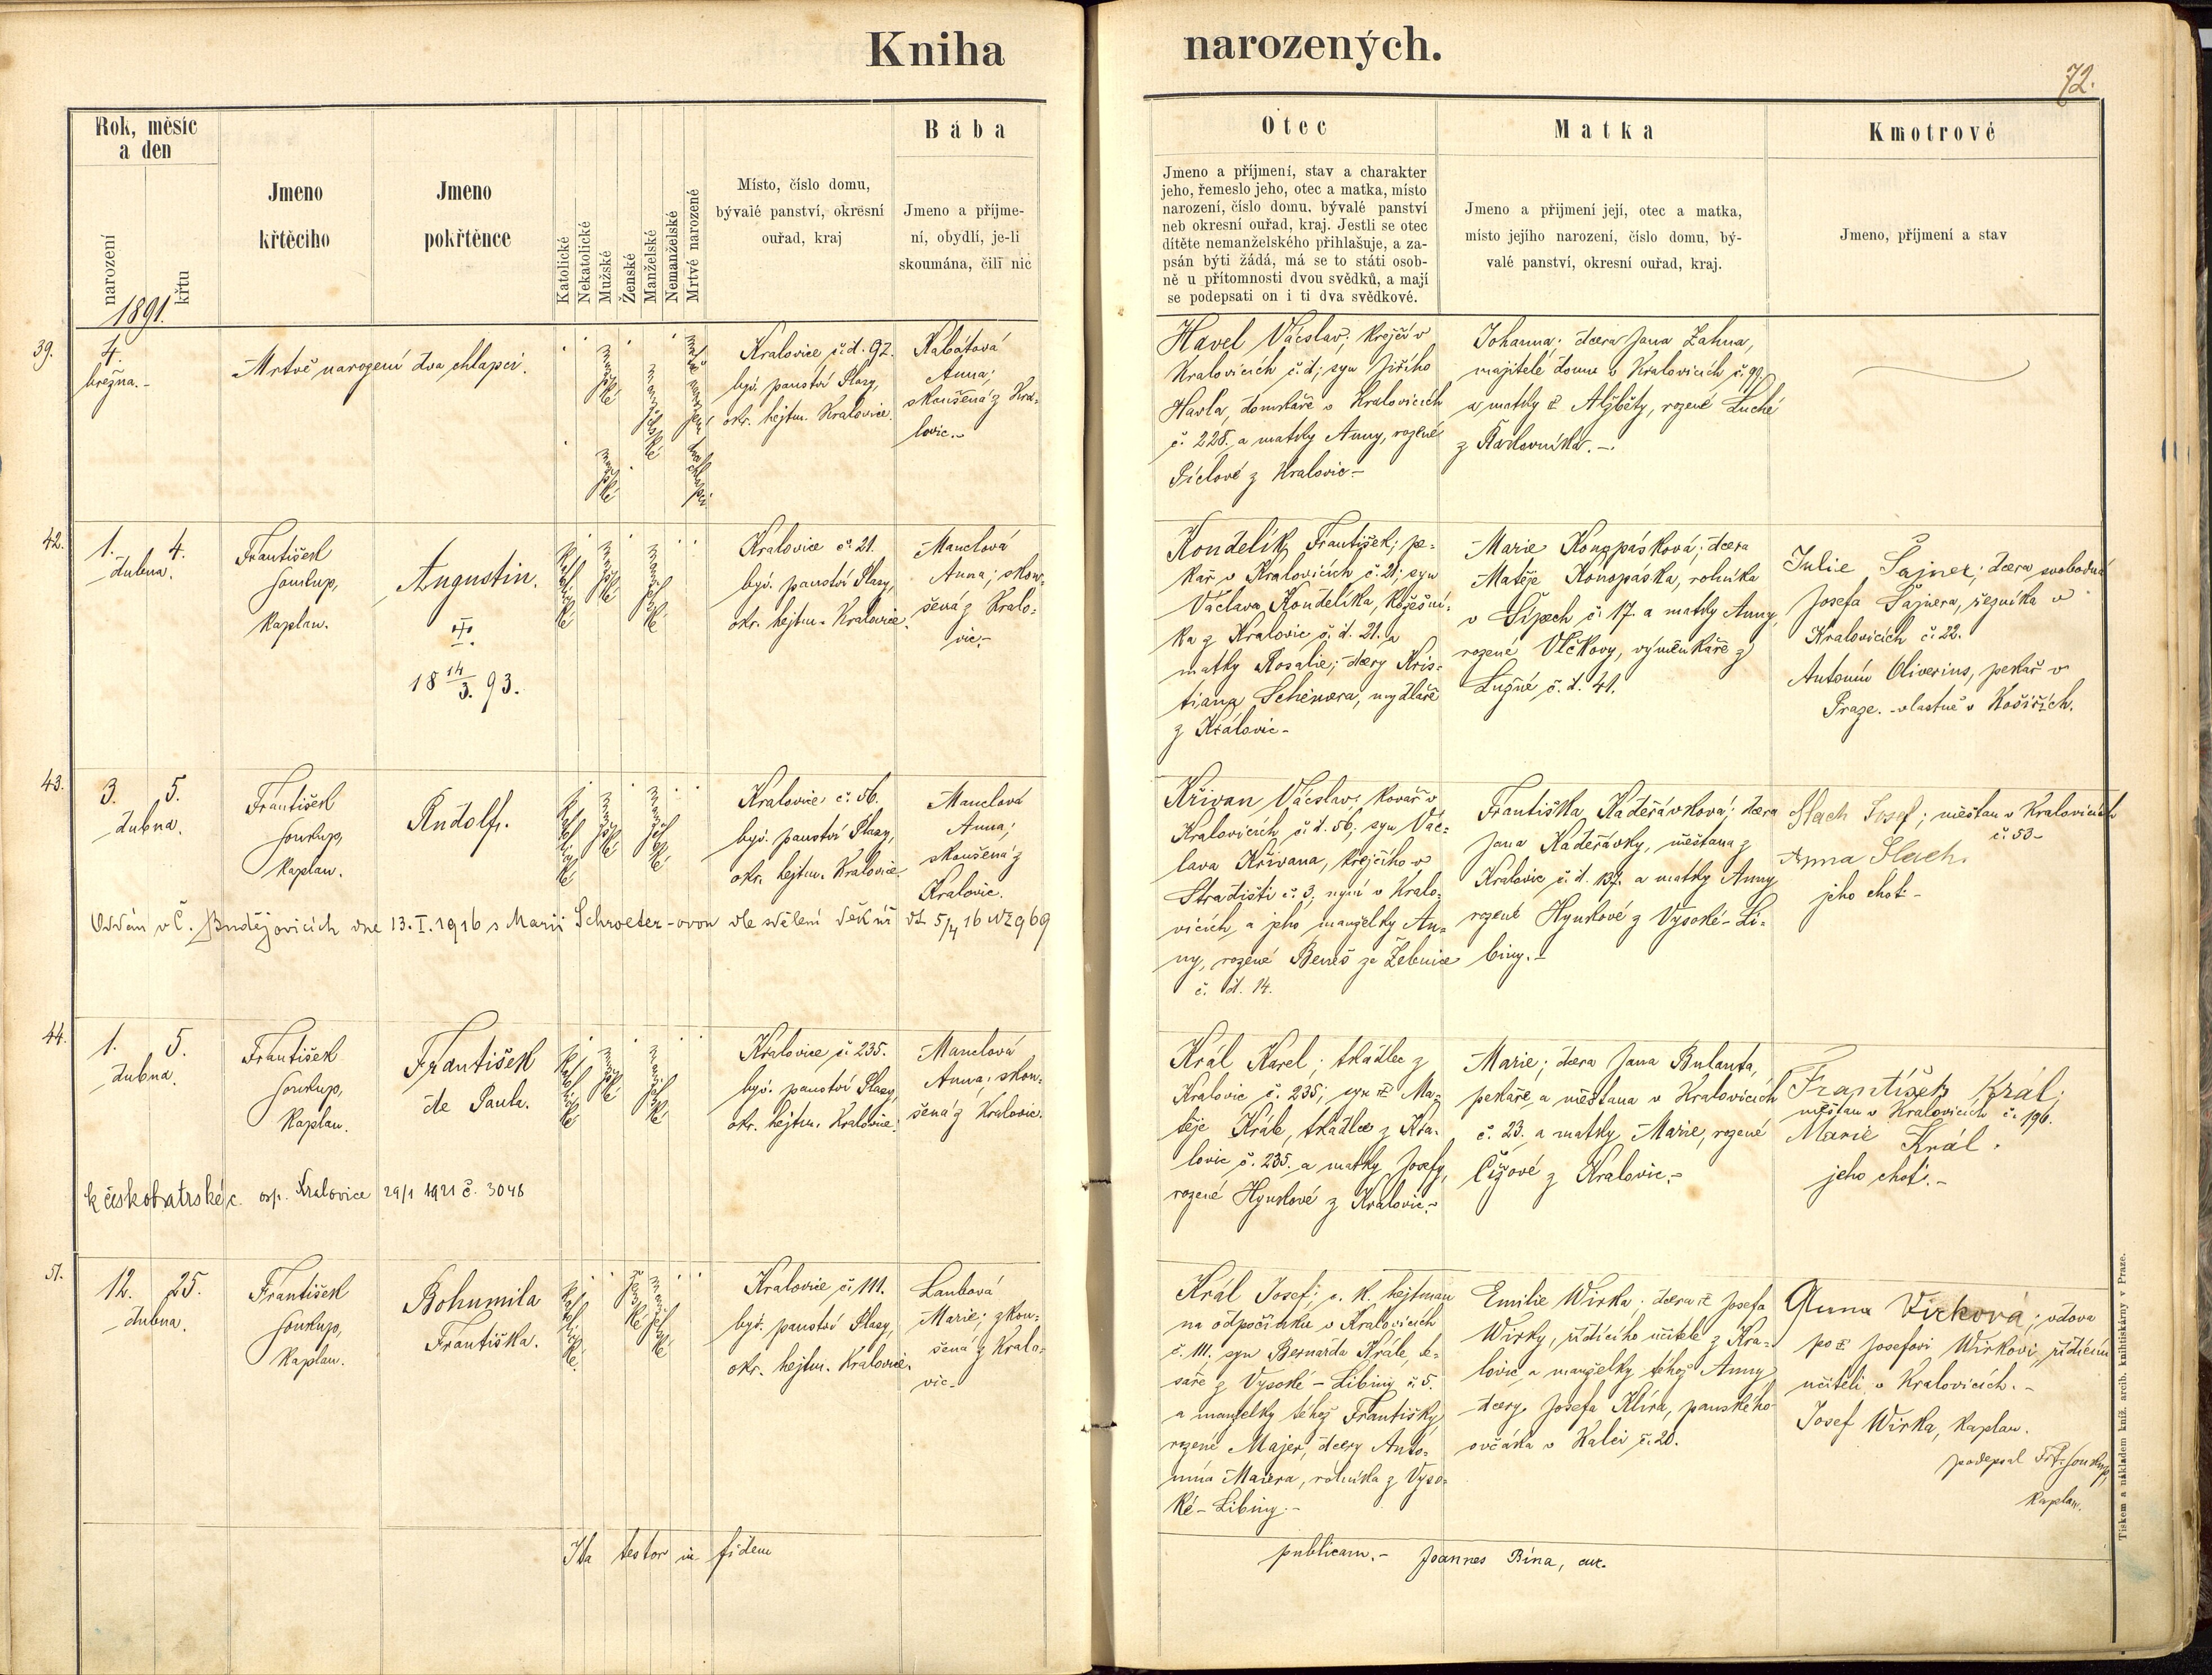 Kniha narozených.
72.
Rok, měsíc
a den
narození
křtu
1891.
Jmeno
křtěcího
Jmeno
pokřtěnce
Katolické
Nekatolické
Mužské
Ženské
Manželské
Nemanželské
Mrtvé narozené
Místo, číslo domu,
bývalé panství, okresní
ouřad, kraj
Bába
Jmeno a příjme-
ní, obydlí, je-li
skoumána, čili nic
Otec
Jmeno a příjmení, stav a charakter
jeho, řemeslo jeho, otec a matka, místo
narození, číslo domu, bývalé panství
neb okresní ouřad, kraj. Jestli se otec
dítěte nemanželského přihlašuje, a za-
psán býti žádá, má se to státi osob-
ně u přítomnosti dvou svědků, a mají
se podepsati on i ti dva svědkové.
Matka
Jmeno a přijmení její, otec a matka,
místo jejího narození, číslo domu, bý-
valé panství, okresní ouřad, kraj.
Kmotrové
Jmeno, příjmení a stav
39.
4.
března.-
Mrtvě narození dva chlapci.
mužské
mužské
manželské
mrtvě narození dva chlapci
Kralovice č.d. 92.
býv. panství Plasy,
okr. hejtm. Kralovice.
Kabátová
Anna;
skoušená z Kra-
lovic.-
Havel Václav; krejčí v
Kralovicích č.d; syn Jiřího
Havla, domkáře v Kralovicích
č. 228. a matky Anny, rozené
Píclové z Kralovic-
Johanna; dcera Jana Zahna,
majitele domu v Kralovicích č. 99.
a matky Alžběty, rozené Suché
z .-
42.
1. 4.
dubna.
František
Soukup,
kaplan.
Augustin.
18 14/3. 93.
katolické
mužské
manželské
Kralovice č. 21.
býv. panství Plasy,
okr. hejtm. Kralovice.
Manclová
Anna; skou-
šená z Kralo-
vic.-
Kondelík František; pe-
kař v Kralovicích č. 21; syn
Václava Kondelíka, kožešní-
ka z Kralovic č. d. 21. a
matky Rosalie; dcery Kris-
tiana , mydláře
z Kralovic-
Marie Konopásková; dcera
Matěje Konopáska, rolníka
v Sípech č. 17. a matky Anny,
rozené Vlčkovy, výměnkáře z
Lužné č. d. 41.
Julie Šajner; dcera svobodná
Josefa Šajnera, řezníka v
Kralovicích č. 22.
Antonín Oliverius, pekař v
Praze. -vlastně v Košířích.
43.
3. 5.
dubna.
František
Soukup,
kaplan.
Rudolf.
katolické
mužské
manželské
Kralovice č. 56.
býv. panství Plasy,
okr. hejtm. Kralovice.
Manclová
Anna;
skoušená z
Kralovic.
Oddán v Č. Budějovicích dne 13. I. 1916 s Marií Schroeter-ovou dle sdělení děk. úř. dt. 5/4 16 
Křivan Václav; kovář v
Kralovicích č.d. 56; syn Vác-
lava Křivana, krejčího v
Stradišti č. 3, nyní v Kralo-
vicích, a jeho manželky An-
ny, rozené Beneš ze Žebnice
č. d. 14.
Františka Kadeřávková; dcera
Jana Kadeřávky, měšťana z
Kralovic č. d. 132. a matky Anny
rozené Hynkové z Vysoké-Li-
biny.-
Slach Josef; měšťan v Kralovicích
č. 53-
Anna Slach.
jeho choť-
44.
1. 5.
dubna.
František
Soukup,
kaplan.
František
de Paula.
katolické
mužské
manželské
Kralovice č. 235.
býv. panství Plasy,
okr. hejtm. Kralovice.
Manclová
Anna; skou-
šená z Kralovic.
k českobratrské c. osp. Kralovice 29/1 1921 č. 3048
Král Karel; tkadlec z
Kralovic č. 235; syn Ma-
těje Krále, tkadlce z Kra-
lovic č. 235. a matky Josefy,
rozené Hynkové z Kralovic.-
Marie; dcera Jana Bulanta,
pekaře a měšťana v Kralovicích
č. 23. a matky Marie, rozené
Čížové z Kralovic.-
František Král;
měšťan v Kralovicích č. 196.
Marie Král.
jeho choť.-
51.
12. 25.
dubna.
František
Soukup,
kaplan.
Bohumila
Františka.
katolické.
ženské
manželské
Kralovice č. 111.
býv. panství Plasy,
okr. hejtm. Kralovice.
Laubová
Marie; zkou-
šená z Kralo-
vic-
Král Josef; c. k. hejtman
na odpočinku v Kralovicích
č. 111. syn Bernarda Krále, te-
saře z Vysoké-Libiny č. 5.
a manželky téhož Františky
rozené Majer, dcery Anto-
nína Maiera, rolníka z Vyso-
ké-Libiny.-
Emilie Wirka; dcera Josefa
Wirky, řídícího učitele z Kra-
lovic a manželky téhož Anny
dcery Josefa Klíra, panského
ovčáka v Kalci č. 20.
Anna Virková; vdova
po Josefovi Wirkovi, řídícím
učiteli v Kralovicích.-
Josef Wirka, kaplan.
podepsal Frt. Soukup,
kaplan.
Ita testor in fidem publicam.- Joannes Bína, cur.
Tiskem a nákladem kníž. arcib. knihtiskárny v Praze.